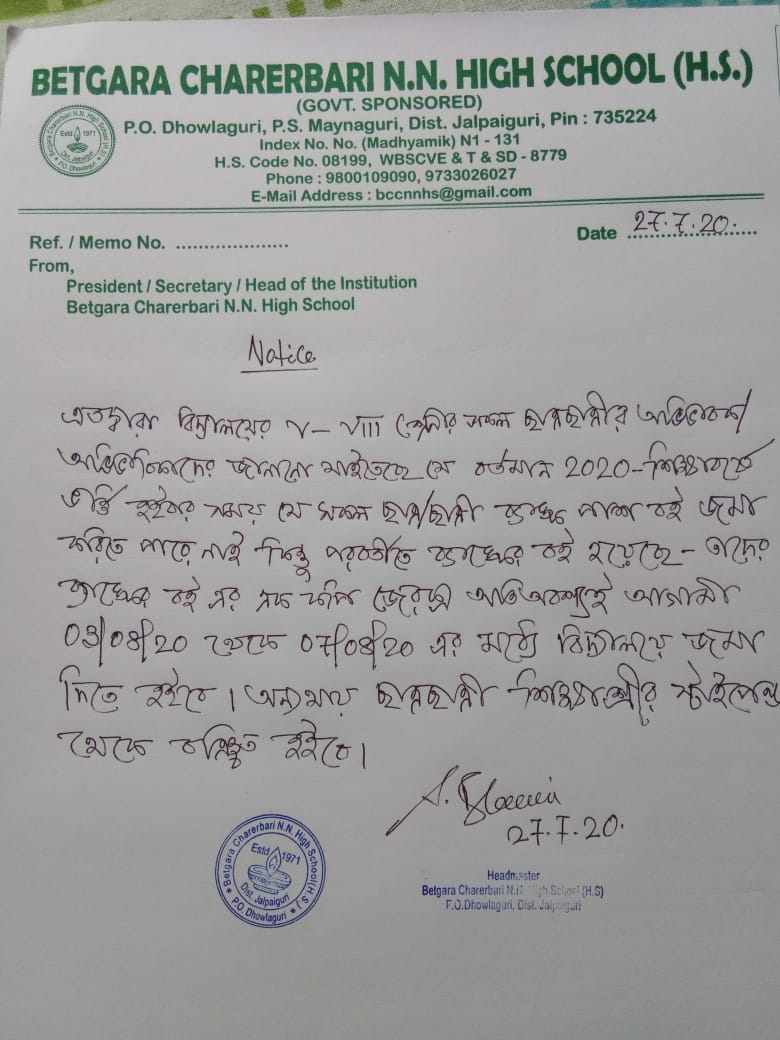 BETGARA CHARERBARI N.N. HIGH SCHOOL (H.S.)
(GOVT. SPONSORED)
P.O. Dhowlaguri, P.S. Maynaguri, Dist. Jalpaiguri, Pin : 735224
Index No. No. (Madhyamik) N1 - 131
H.S. Code No. 08199, WBSCVE & T & SD - 8779
Phone : 9800109090, 9733026027
E-Mail Address : bccnnhs@gmail.com
Betgara Charerbari N.N. High School (H.S.)
Estd 1971
Dist. Jalpaiguri
P.O. Dhowlaguri
Ref. / Memo No. .....................
Date 27.7.20.
From,
President / Secretary / Head of the Institution
Betgara Charerbari N.N. High School
Notice
এতদ্বারা বিদ্যালয়ের V-VIII শ্রেনীর সকল ছাত্রছাত্রীর অভিভাবক/
অভিভাবিকাদের জানানো যাইতেছে যে বর্তমান 2020-শিক্ষাবর্ষে
ভর্তি হইবার সময় যে সকল ছাত্র/ছাত্রী ব্যাঙ্কের পাশ বই জমা
করিতে পারে নাই কিন্তু পরবর্তীতে ব্যাঙ্কের বই হয়েছে - তাদের
ব্যাঙ্কের বই এর এক কপি জেরক্স অতি অবশ্যই আগামী
03/08/20 থেকে 07/08/20 এর মধ্যে বিদ্যালয়ে জমা
দিতে হইবে। অন্যথায় ছাত্রছাত্রী শিক্ষাশ্রীর স্টাইপেন্ড
থেকে বঞ্চিত হইবে।
27.7.20.
Betgara Charerbari N.N. High School (H.S.)
Estd 1971
Dist. Jalpaiguri
P.O. Dhowlaguri
Headmaster
Betgara Charerbari N.N. High School (H.S)
P.O.Dhowlaguri, Dist. Jalpaiguri